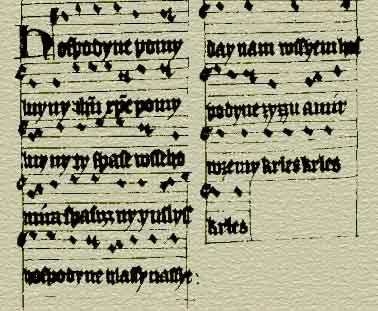 Hospodyne pomy
luy ny ihu xpe pomy
luy ny ty spase wseho
mira spasiz ny y uslys
hospodyne hlassy nassye
day nam wssyem hos
podyne zyzn a mir
w zemy krles krles
krles